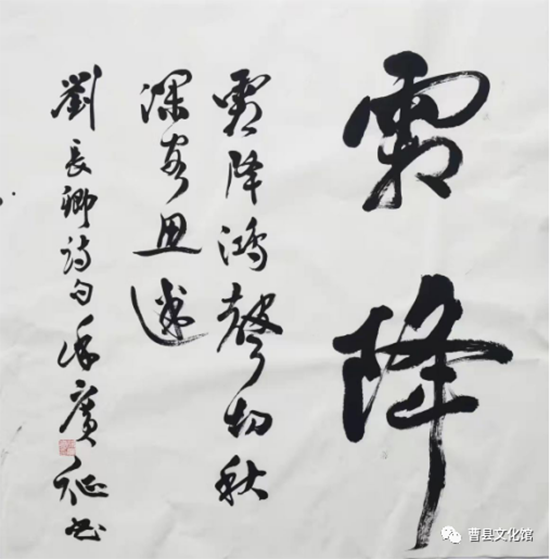 霜降
霜降鴻聲切秋
深客思迷
劉長卿詩句廣征书
曹县文化馆